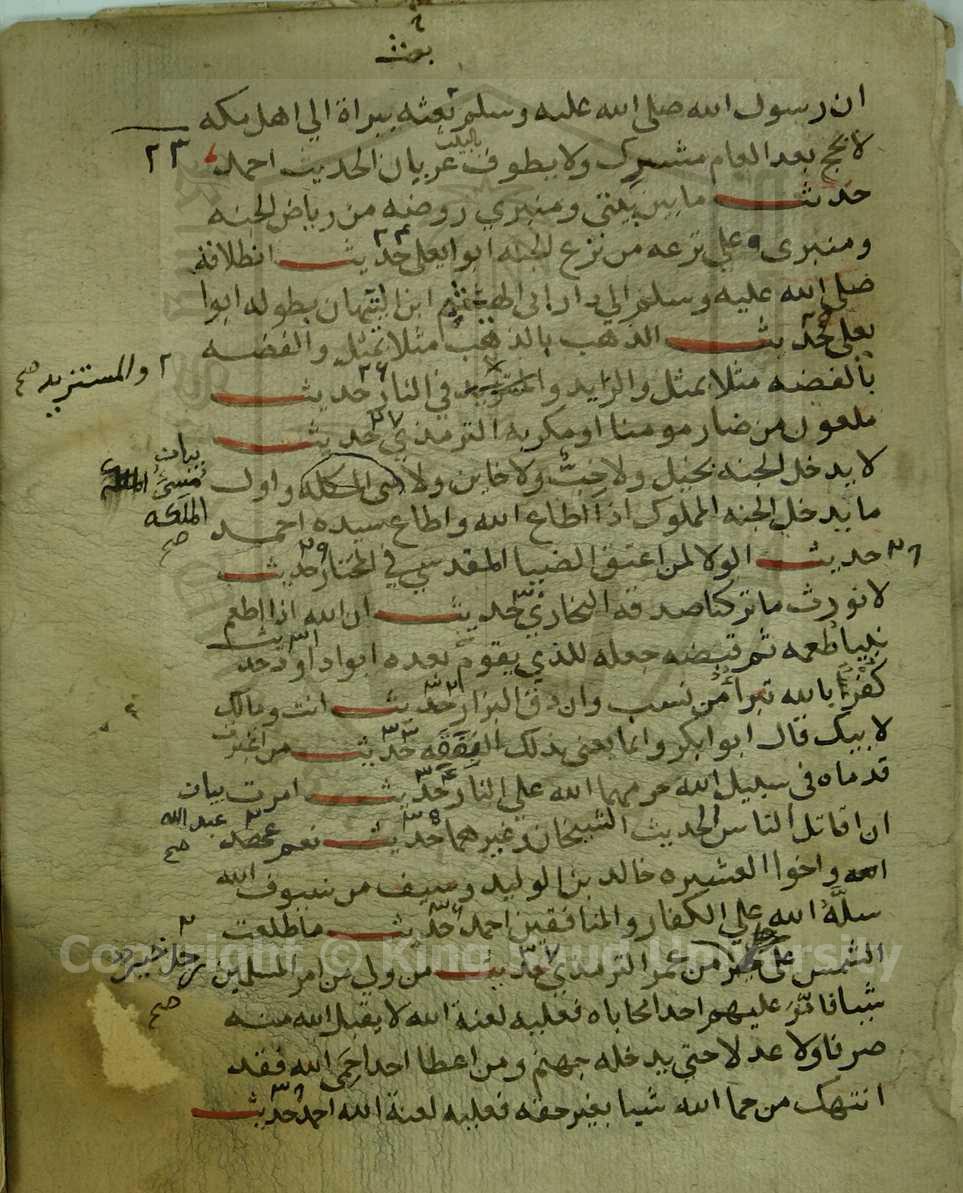 بعث
ان رسول الله صلى الله عليه وسلم بعثه ببراة الي اهل مكه
لا يحج بعد العام مشرك ولا يطوف بالبيت عريان الحديث احمد ٢٣
حديث ما بين بيتي ومنبري روضه من رياض الجنه
ومنبري علي ترعه من ترع الجنه ابوا يعلى ٢٤ حديث انطلاقة
صلي الله عليه وسلم الي دار ابي الهيثم ابن التيهان بطوله ابوا
يعلي ٢٥ حديث الذهب بالذهب مثلا بمثل والفضه
بالفضه مثلا بمثل والزايد والمستزيد في النار ٢٦ حديث
٢ والمستزيد صح
ملعون من ضار مومنا او مكر به الترمذي ٢٧ حديث
لا يدخل الجنه بخيل ولا خب ولا خاين ولا سي الملكه واول
بيان سيئ الملكه صح
ما يدخل الجنه المملوك اذا اطاع الله واطاع سيده احمد
٢٨ حديث الولا لمن اعتق الضيا المقدسي في المختار ٢٩ حديث
لا نورث ما تركنا صدقه البخاري ٣٠ حديث ان الله اذا اطعم
نبيا طعمه ثم قبضه جعله للذي يقوم بعده ابوا داود ٣١ حديث
كفر بالله تبرا من نسب وان دق البزار ٣٢ حديث انت ومالك
لابيك قال ابوا بكر وانما يعني بذلك النفقه ٣٣ حديث من اغبرت
قدماه في سبيل الله حرمهما الله علي النار ٣٤ حديث امرت بيان
ان اقاتل الناس الحديث الشيخان وغيرهما ٣٥ حديث نعم عبد
عبد الله صح
الله واخوا العشيره خالد بن الوليد وسيف من سيوف الله
سله الله علي الكفار والمنافقين احمد ٣٦ حديث ما طلعت
الشمس على رجل خير من عمر الترمذي ٣٧ حديث من ولي من امر المسلمين
٢ رجل خير صح
شيا فامر عليهم احدا محاباه فعليه لعنة الله لا يقبل الله منه
صرفا ولا عدلا حتي يدخله جهنم ومن اعطا احدا حمى الله فقد
انتهك من حما الله شيا بغير حقه فعليه لعنة الله احمد ٣٨ حديث
Copyright © King Saud University